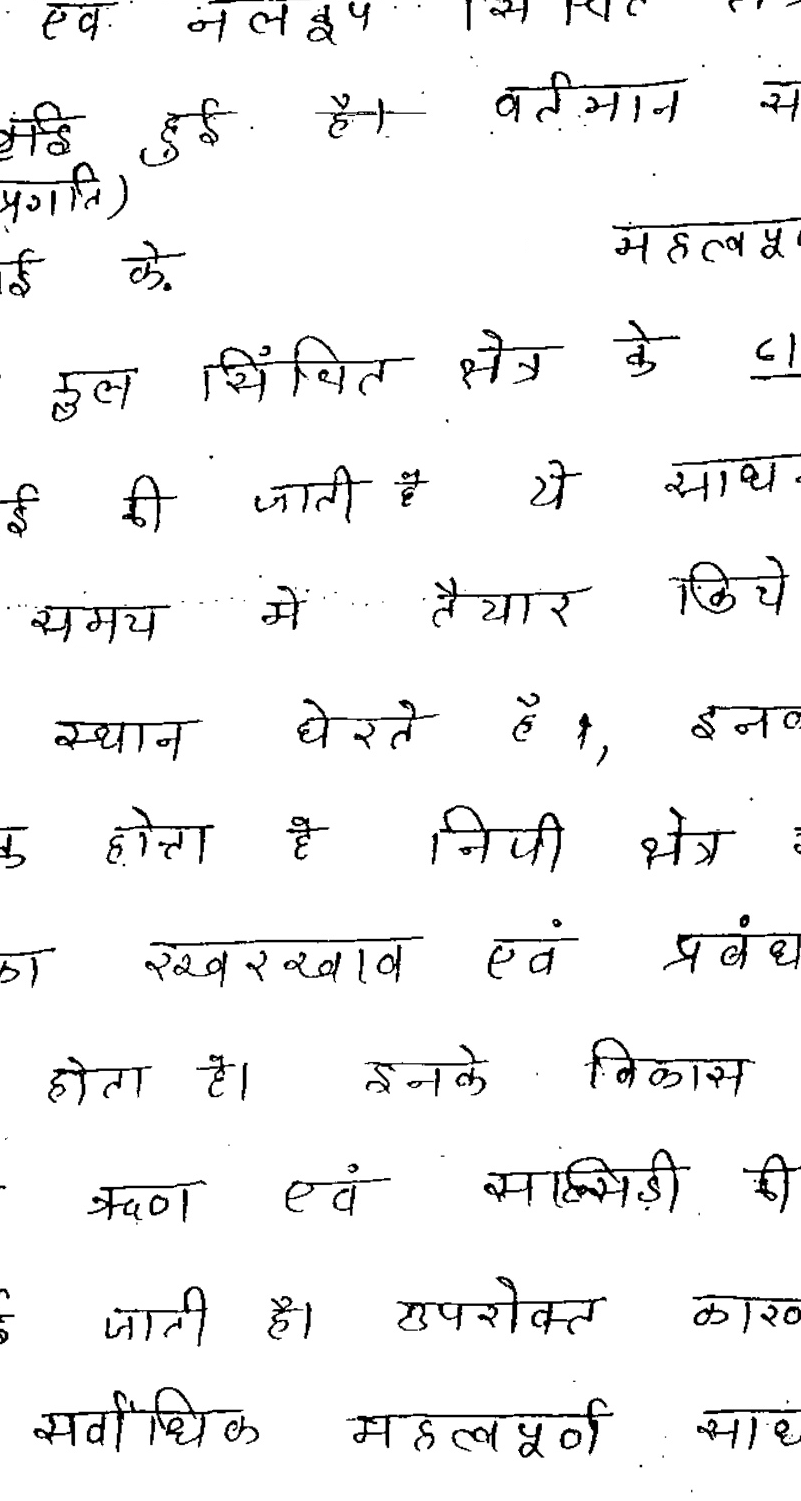 एवं नलकूप सिंचित
हुई है। वर्तमान स
प्रगति)
ई के. महत्वपू
कुल सिंचित क्षेत्र के
ई की जाती है ये साध
समय में तैयार किये
स्थान घेरते है।, इनक
होता है निजी क्षेत्र
का रखरखाव एवं प्रबंध
होता है। इनके विकास
ऋण एवं सब्सिडी की
जाती है। उपरोक्त कारण
सर्वाधिक महत्वपूर्ण साध